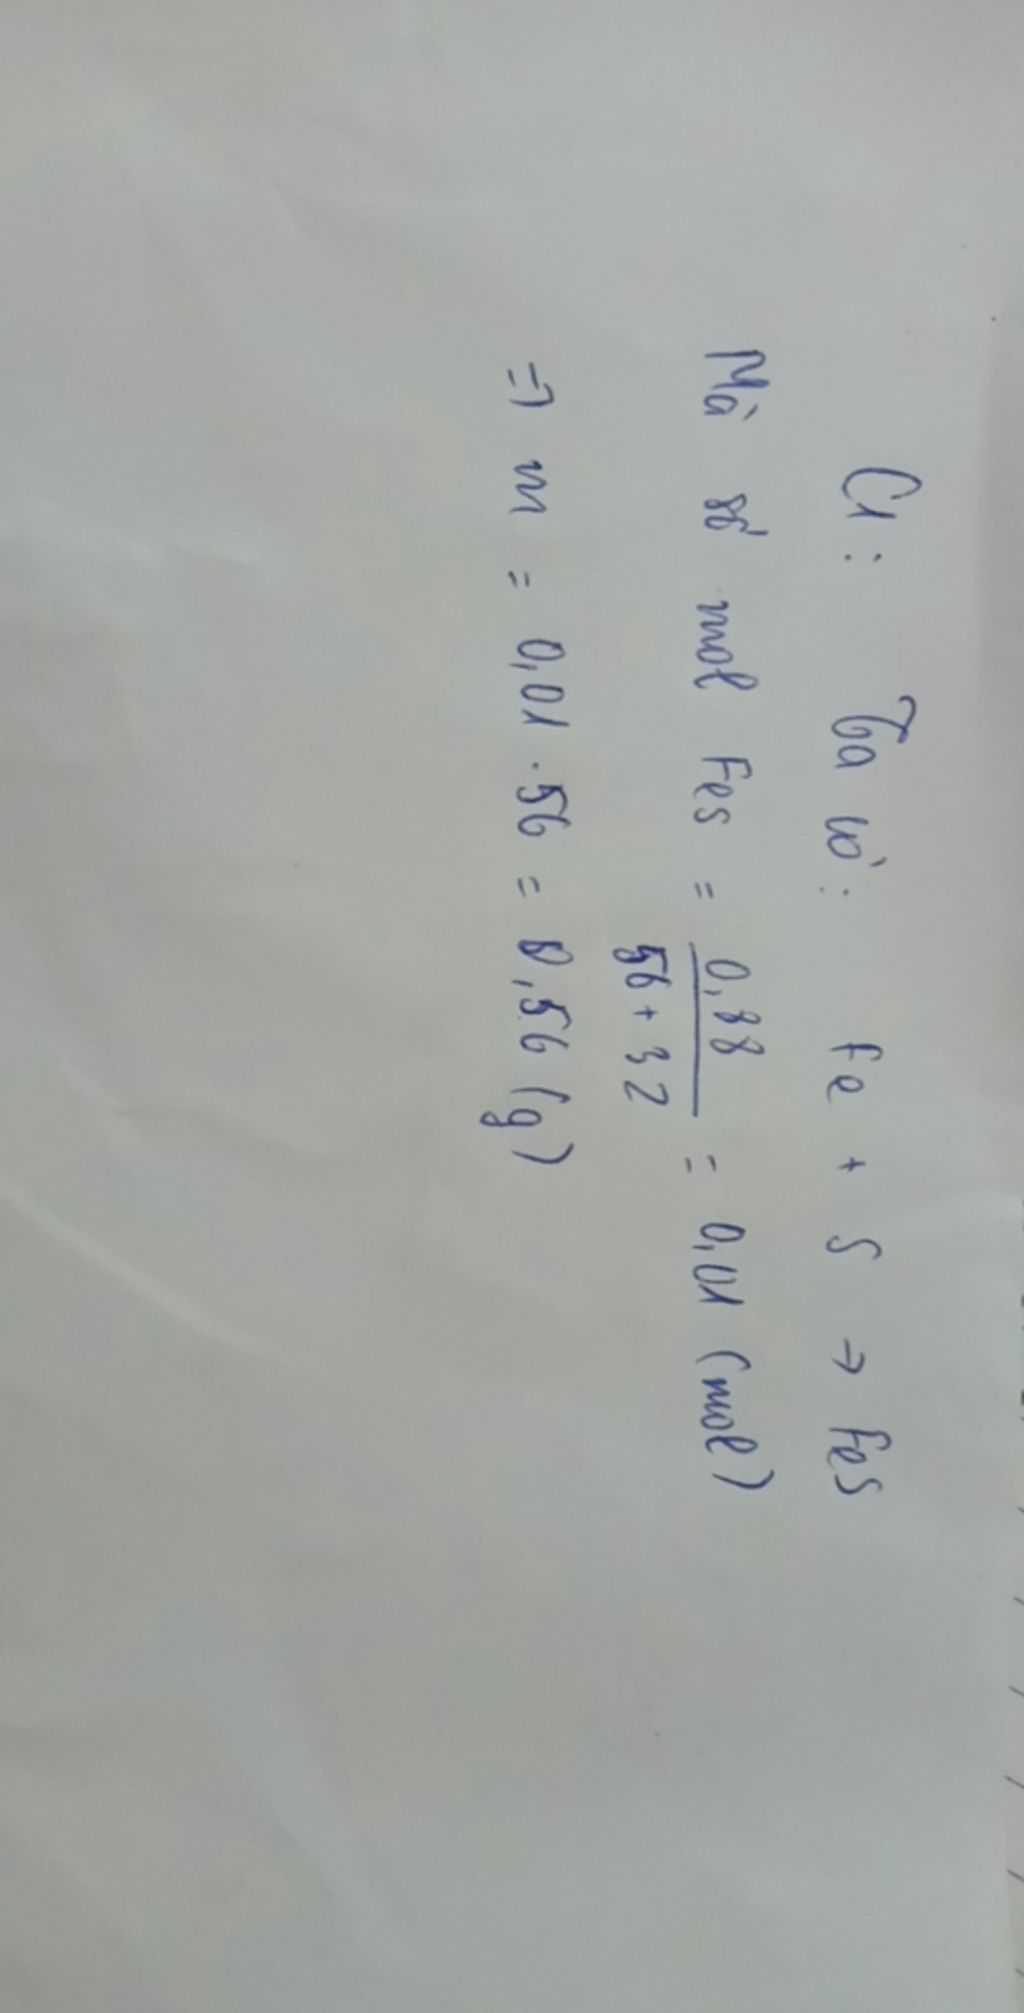 C1: Ta có: Fe + S → FeS
Mà số mol FeS = 0,88 / 56 + 32 = 0,01 (mol)
=> m = 0,01 . 56 = 0,56 (g)